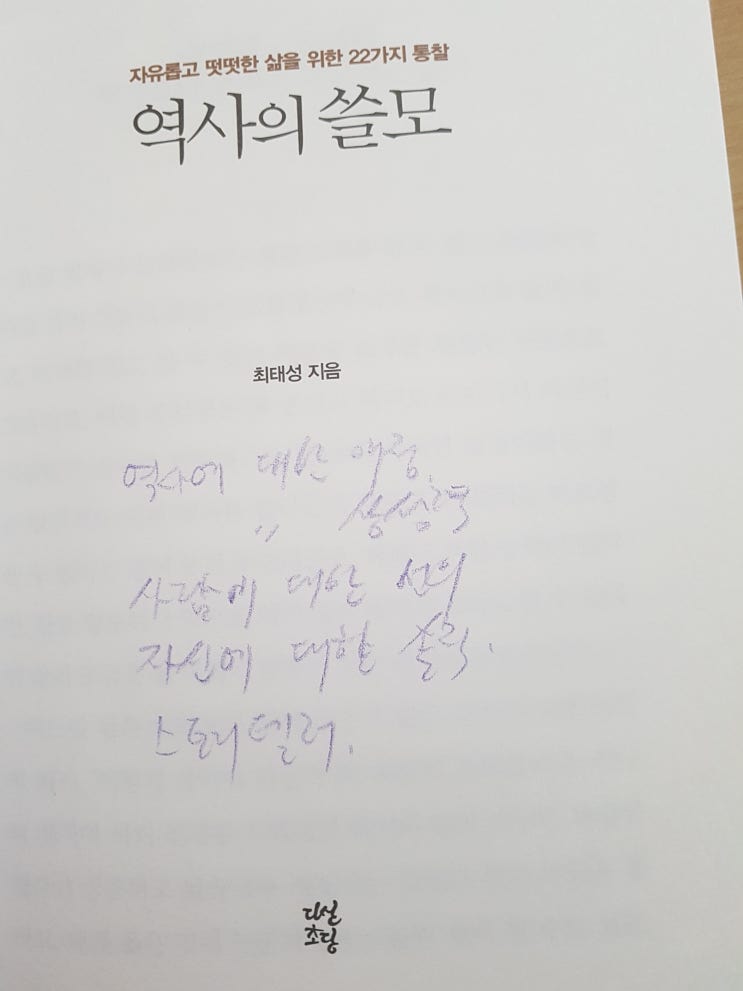 자유롭고 떳떳한 삶을 위한 22가지 통찰
역사의 쓸모
최태성 지음
역사에 대한 애정,
〃 상상력
사람에 대한 선의
자신에 대한 솔직.
스토리텔러.
다산
초당